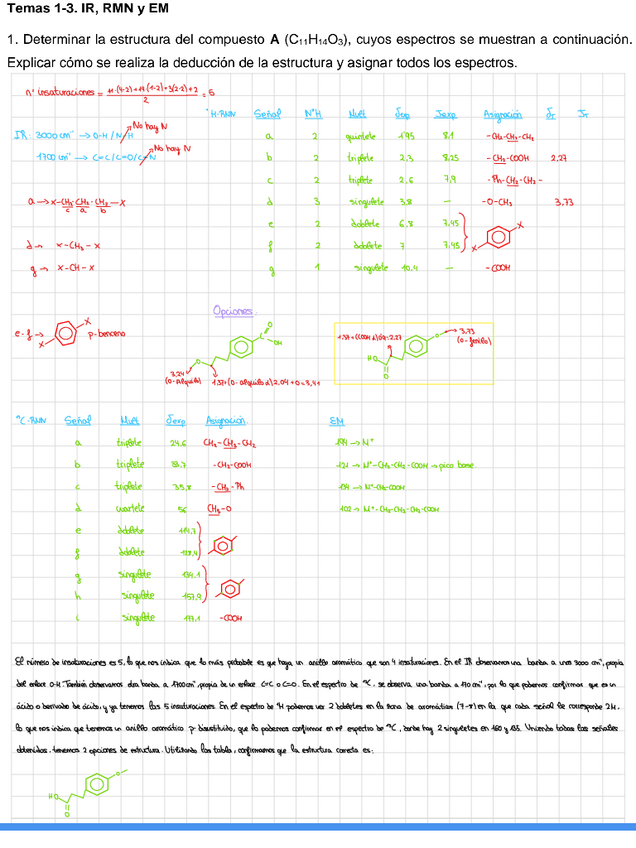 Temas 1-3. IR, RMN y EM
1. Determinar la estructura del compuesto A (C₁₁H₁₄O₃), cuyos espectros se muestran a continuación.
Explicar cómo se realiza la deducción de la estructura y asignar todos los espectros.
nº insaturaciones = = 5
¹H-RMN Señal NºH Mult δexp Jexp Asignación
IR: 3000 cm⁻¹ → O-H / N-H No hay N
1700 cm⁻¹ → C=C / C=O / C=N No hay N
a 2 quintete 1,95 8,1 -CH₂-CH₂-CH₂
b 2 triplete 2,3 8,25 -CH₂-COOH 2,27
c 2 triplete 2,6 7,9 -Ph-CH₂-CH₂-
d 3 singulete 3,8 — -O-CH₃ 3,73
e 2 doblete 6,8 7,45
f 2 doblete 7 7,45
g 1 singulete 10,4 — -COOH
a → X-CH₂-CH₂-CH₂-X
c a b
d → X-CH₃-X
g → X-CH-X
Opciones
e-f → p-benceno
3,24 (O-Alquilo)
3,73 (O-fenilo)
¹³C-RMN Señal Mult δexp Asignación
EM
a triplete 24,6 CH₂-CH₂-CH₂
b triplete 33,7 -CH₂-COOH
c triplete 35,8 -CH₂-Ph
d cuartete 56 CH₃-O
e doblete 114,7
f doblete
g singulete 134,1
h singulete 157,9
i singulete -COOH
194 → M⁺
121 → M⁺-CH₂-CH₂-COOH → pico base
102 → M⁺-CH₂-CH₂-CH₂-COOH
El número de insaturaciones es 5, lo que nos indica que lo más probable es que haya un anillo aromático que son 4 insaturaciones. En el IR observamos una banda a unos 3000 cm⁻¹, propia
del enlace O-H. También observamos otra banda a 1700 cm⁻¹, propia de un enlace C=C o C=O. En el espectro de ¹³C, se observa una banda a 170 cm⁻¹, por lo que podemos confirmar que es un
ácido o derivado de ácido, y ya tenemos las 5 insaturaciones. En el espectro de ¹H podemos ver 2 dobletes en la zona de aromáticos (7-8) en la que cada señal le corresponde 2H,
lo que nos indica que tenemos un anillo aromático p-disustituido, que lo podemos confirmar en el espectro de ¹³C, donde hay 2 singuletes en 160 y 135. Uniendo todas las señales
obtenidas, tenemos 2 opciones de estructura. Utilizando las tablas, confirmamos que la estructura correcta es:
HO
O